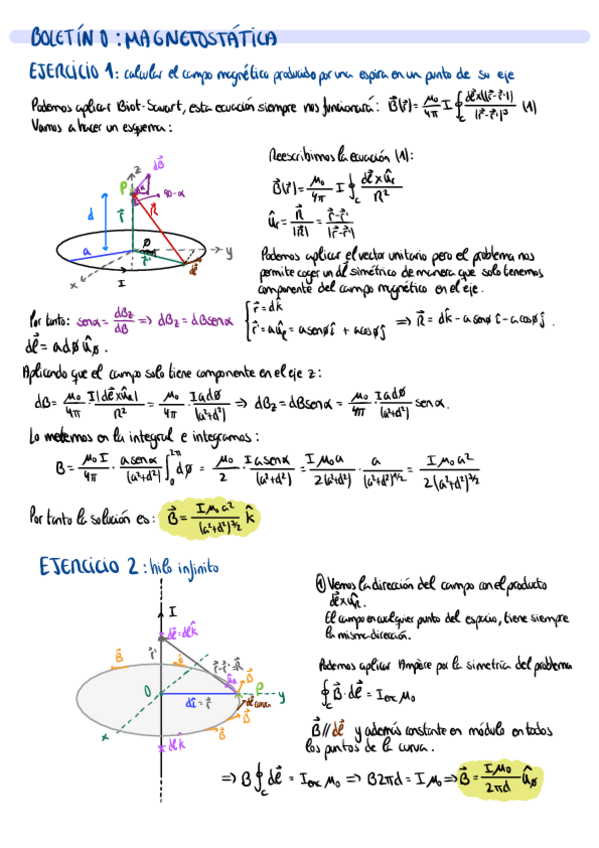 BOLETÍN 0: MAGNETOSTÁTICA
EJERCICIO 1: calcular el campo magnético producido por una espira en un punto de su eje
Podemos aplicar Biot-Savart, esta ecuación siempre nos funcionará: B⃗(r⃗) = μ₀/4π I ∮_c dl⃗ x (r⃗-r⃗')/|r⃗-r⃗'|³ (1)
Vamos a hacer un esquema:
z
dB⃗
P
α
90-α
d
r⃗
R⃗
a
ø
r⃗'
y
x
I
dl⃗
Reescribimos la ecuación (1):
B⃗(r⃗) = μ₀/4π I ∮_c dl⃗ x û_r/R²
û_r = R⃗/|R⃗| = r⃗-r⃗'/|r⃗-r⃗'|
Podemos aplicar el vector unitario pero el problema nos
permite coger un dl simétrico de manera que solo tenemos
componente del campo magnético en el eje.
Por tanto: senα = dBz/dB => dBz = dB senα { r⃗ = dk̂
r⃗' = aû_ρ = a senø î + a cosø ĵ => R⃗ = dk̂ - a senø î - a cosø ĵ.
dl⃗ = adø û_ø.
Aplicando que el campo solo tiene componente en el eje z:
dB = μ₀/4π · I|dl⃗ x û_R|/R² = μ₀/4π · I a dø/(a²+d²) => dBz = dB senα = μ₀/4π · I a dø/(a²+d²) senα.
Lo metemos en la integral e integramos:
B = μ₀I/4π · a senα/(a²+d²) ∫₀^2π dø = μ₀/2 · I a senα/(a²+d²) = I μ₀ a/2(a²+d²) · a/(a²+d²)^1/2 = I μ₀ a²/2(a²+d²)^3/2
Por tanto la solución es: B⃗ = I μ₀ a²/(a²+d²)^3/2 k̂
EJERCICIO 2: hilo infinito
I
dl⃗ = dl k̂
r⃗'
r⃗-r⃗' = R⃗
B⃗
û_R
B⃗
P
0
dî = r⃗
y
dl curva
B⃗
B⃗
x
dl k̂
① Vemos la dirección del campo con el producto
dl⃗ x û_R.
El campo en cualquier punto del espacio, tiene siempre
la misma dirección.
Podemos aplicar Ampère por la simetría del problema
∮_c B⃗ · dl⃗ = I_enc μ₀
B⃗ // dl⃗ y además constante en módulo en todos
los puntos de la curva.
=> B ∮_c dl⃗ = I_enc μ₀ => B2πd = I μ₀ => B⃗ = I μ₀/2πd û_ø